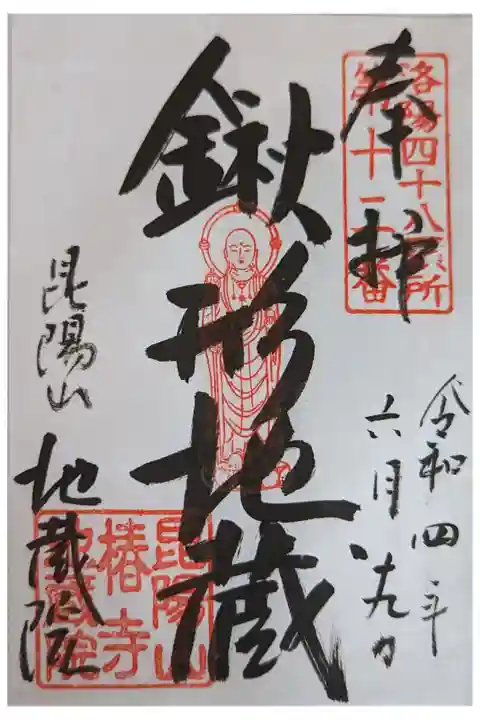 洛陽四十八願所
第十二番
奉拝
令和四年
六月十九日
鍬形地蔵
昆陽山
地蔵院
昆陽山
椿寺
地蔵院